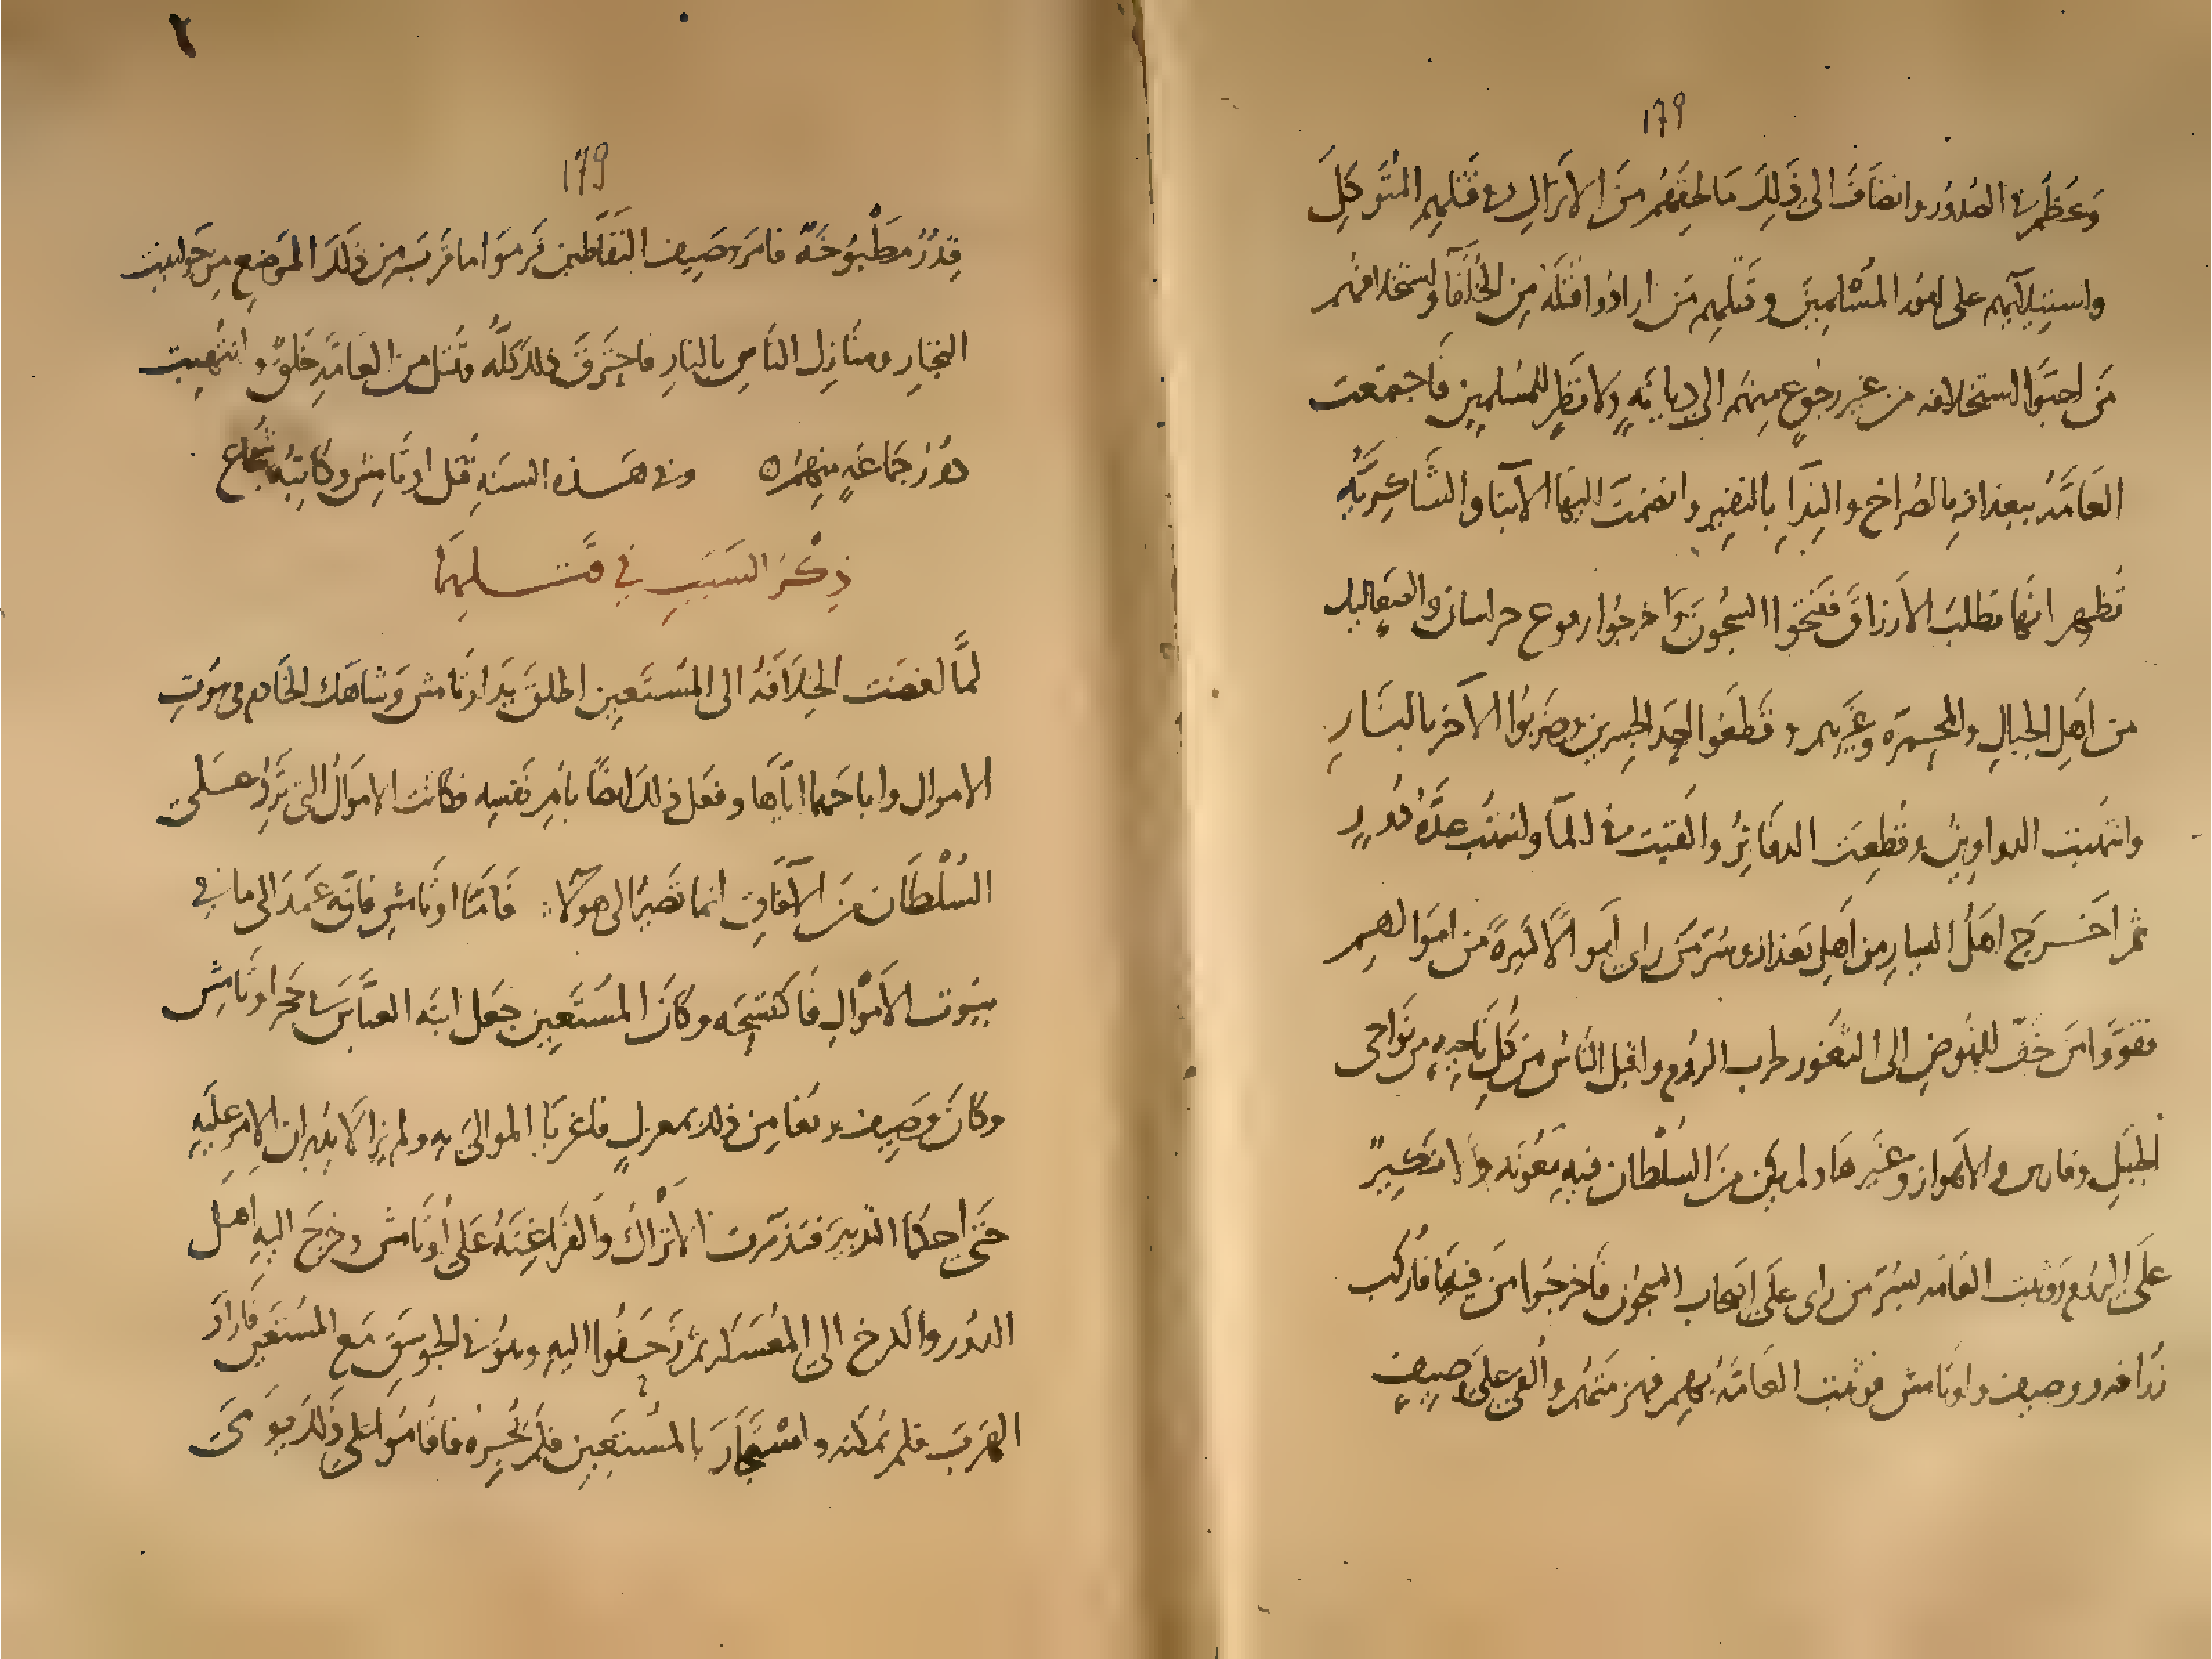 ١٦٩
وَعَظُمَ في الصُدُور وانضَافَ الى ذَلِكَ مَا لحِقَهُم مِنَ الاتراكِ في قَتلِهِم المُتَوَكِلَ
واستِيلآيهم على امُور المُسْلِمِينَ وقَتلِهم مَن ارادُوا قتلَهُ مِن الخُلَفَآ واستخلافهُم
مَن احبّوا استخلافه من غير رجُوعٍ مِنهُم الى دِيانَةٍ ولا نظَرٍ للمُسلمِينَ فَاجتمَعَت
العَامَّةُ ببغداذ بِالصُراخِ والنِدَآءِ بِالنَفِيرِ وانضمَت اليهَا الابنآ والشَّاكِرِيَّةُ
تُظهِر انهَا تطلبُ الارزاقَ ففتَحُوا السجُونَ واخرجُوا رفوع خراسان والصَعَاليك
من اهلِ الجِبالِ والمحمِرَةِ وغَيرِهم وقَطَعُوا احَد الجِسرين وضَربُوا الآخر بالنَّارِ
وانتُهبَت الدواوينُ وقُطِعَت الدفَاتِرُ والقِيَت في المآ وانتُهبَ عِدَّةُ دُورٍ
ثم اخْرَجَ اهلُ اليسارِ من اهلِ بَغدَاد وسُرَّمَن راى اموالاً كثيرةً من امَوالهِم
فقوَّوا مَن خَفَّ للنهُوضِ الى الثغور لحرب الرُوم واقبلَ النَاسُ من كُلِّ نَاحِيةٍ من نَواحى
الجَبَلِ وفارس والاهواز وغَيرِهَا ولم يكن مِنَ السُلْطَان فيهِ مَعُونَه ولا نكِيرٌ
علَى الرُوم ووَثَبت العَامَه بسُرَّ مَن راى علَى اصحاب السجُون فَاخرجُوا مَن فيهَا فَركب
زُرَافَه ووصيف واوتَامش فوثبت العَامَّةُ بهِم فهزمَتهُم والقى على وصِيفٍ
١٦٩
قِدْرٌ مَطْبُوخَةٌ فامَرَ وَصِيف النَفّاطين فَرمَوا ما قَربَ من ذَلكَ الموَضِعِ من حَوانيت
التجّارِ ومنَازِل النَاسِ بالنارِ فاحتَرقَ ذلك كلُّهُ وقُتل من العَامَّةِ خَلقٌ وانتُهِبت
دُوْرُ جَمَاعَةٍ مِنهُم ٥ وفى هَذه السَنةِ قُتل اوتَامِش وكَاتبُهُ شُجاع
ذِكْرُ السَببِ في قَتلِهِمَا
لمَّا افضَت الخِلَافَةُ الى المُستَعِين اطلقَ يَدَ اوتَامش وَشَاهك الخَادِم فى بيُوتِ
الاموال وابَاحَهما اياهَا وفعَل ذلك ايضًا بأمِ نَفسِه فكانت الاموَالُ التى تَرِدُ عَلى
السُلْطَان مِنَ الآفَاقِ انما تَصيرُ الى هوُلآء فَامَّا اوتَامِش فانّه عَمَدَ الى ما فى
بيُوت الاَمْوَالِ فَاكتسَحَه وكَانَ المُستَعِين جعَل ابنَه العبَّاسَ في حَجرِ اوتَامِش
وكَانَ وَصِيف وبُغَا مِن ذلك بمعزِلٍ فاغريَا الموالىَ بِهِ ولم يزالَا يُدبِران الامرَ عليهِ
حَتى احكمَا التدبيرَ فتذمّرت الاتْرَاكُ وَالفَراغِنَةُ عَلَى اوتَامش وخرجَ اليهِ اهل
الدُور والكرخ الى المُعَسكر ثم زَحَفُوا اليهِ وهُوَ فى الجَوسَقِ مَع المُستعَين فَارادَ
الهَربَ فلم يمكنه واسْتَجَارَ بالمُستعِين فلم يُجِرهُ فاقَامُوا على ذَلكَ يَومَين